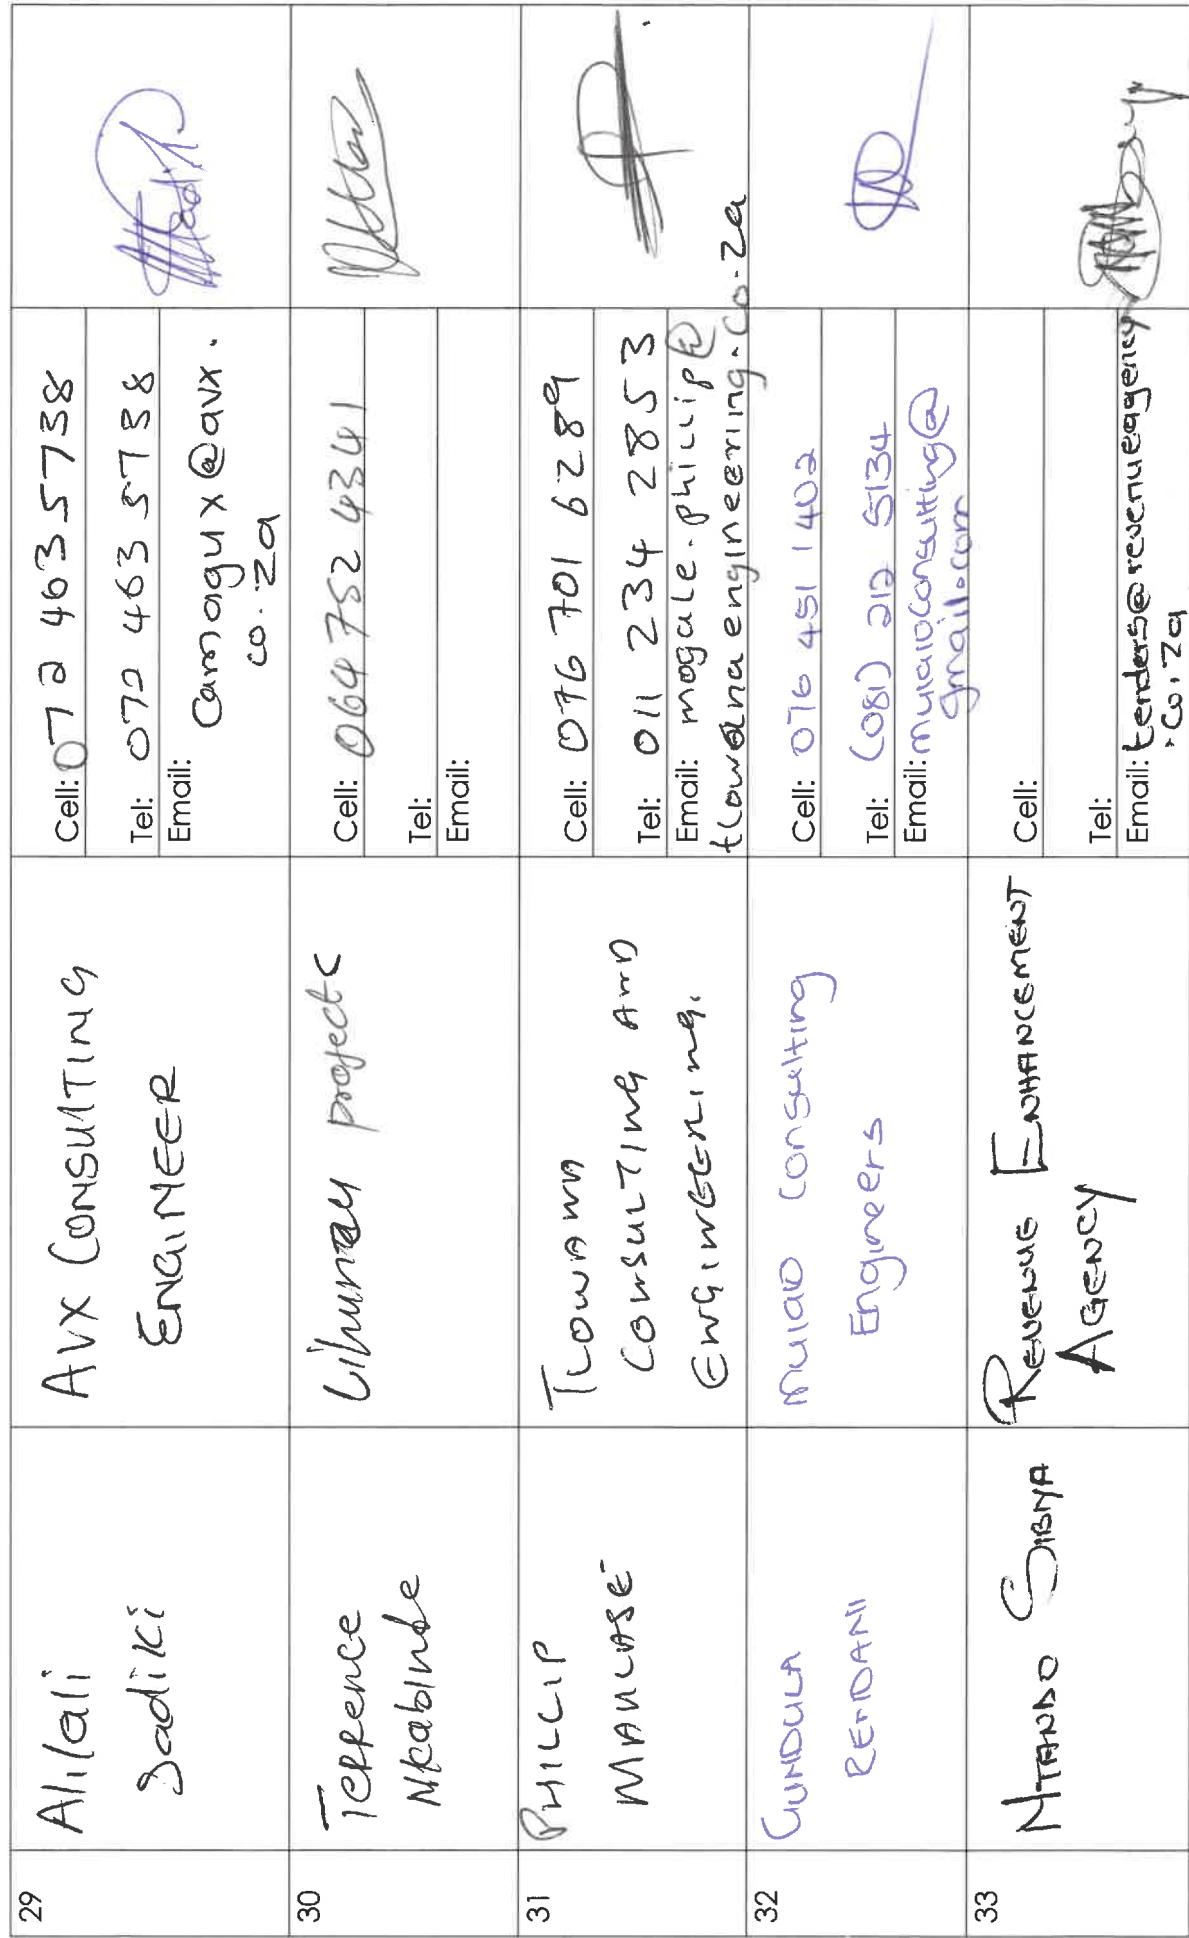 29
Alilali
Sadiki
AVX CONSULTING
ENGINEER
Cell: 072 463 5738
Tel: 072 463 5738
Email:
Camagux@avx.
co.za
30
Terrence
Nkabinde
projects
Cell: 064 752 4341
Tel:
Email:
31
PHILLIP
TLOWANA
CONSULTING AND
ENGINEERING.
Cell: 076 701 6289
Tel: 011 234 2853
Email: mogale.phillip@
tlowanaengineering.co.za
32
GUNDULA
RENDANI
mulalo Consulting
Engineers
Cell: 076 451 1402
Tel: (081) 212 5134
Email: mulaloconsulting@
gmail.com
33
NTANDO SIBIYA
REVENUE ENHANCEMENT
AGENCY
Cell:
Tel:
Email: tenders@revenueagency
.co.za